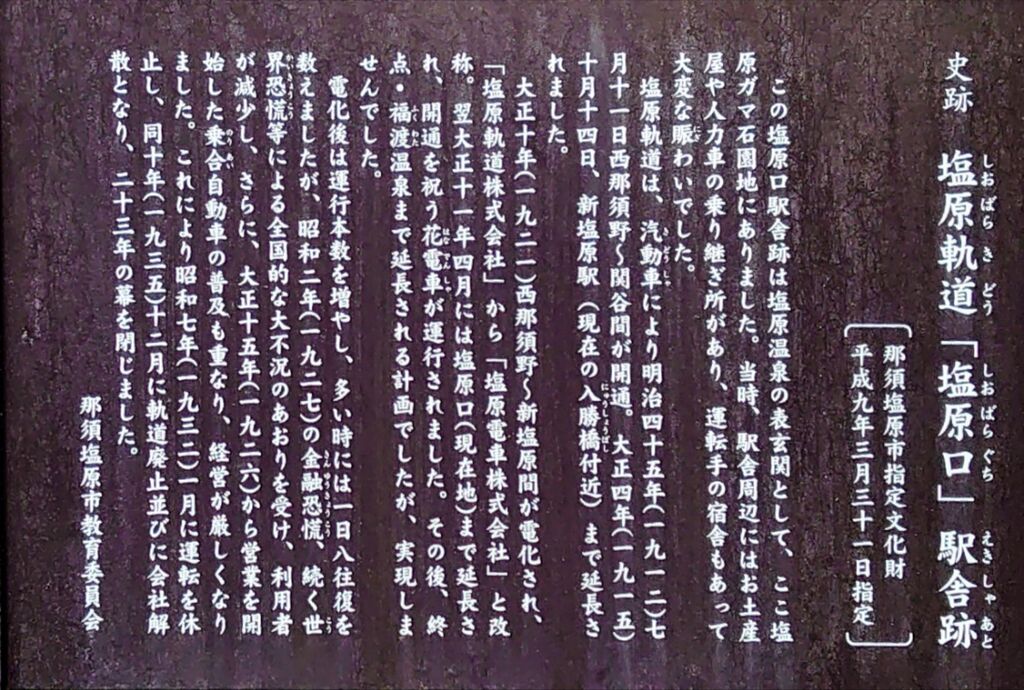 史跡 塩原軌道「塩原口」駅舎跡
しおばらきどう しおばらぐち えきしゃあと
那須塩原市指定文化財
平成九年三月三十一日指定
この塩原口駅舎跡は塩原温泉の表玄関として、ここ塩
原ガマ石園地にありました。当時、駅舎周辺にはお土産
屋や人力車の乗り継ぎ所があり、運転手の宿舎もあって
大変な賑わいでした。
にぎ
塩原軌道は、汽動車により明治四十五年(一九一二)七
きどうしゃ
月十一日西那須野〜関谷間が開通。大正四年(一九一五)
十月十四日、新塩原駅(現在の入勝橋付近)まで延長さ
にゅうしょうばし
れました。
大正十年(一九二一)西那須野〜新塩原間が電化され、
「塩原軌道株式会社」から「塩原電車株式会社」と改
称。翌大正十一年四月には塩原口(現在地)まで延長さ
れ、開通を祝う花電車が運行されました。その後、終
はなでんしゃ
点・福渡温泉まで延長される計画でしたが、実現しま
ふくわた
せんでした。
電化後は運行本数を増やし、多い時には一日八往復を
数えましたが、昭和二年(一九二七)の金融恐慌、続く世
きんゆうきょうこう
界恐慌等による全国的な大不況のあおりを受け、利用者
かいきょうこう
が減少し、さらに、大正十五年(一九二六)から営業を開
始した乗合自動車の普及も重なり、経営が厳しくなり
のりあい
ました。これにより昭和七年(一九三二)一月に運転を休
止し、同十年(一九三五)十二月に軌道廃止並びに会社解
散となり、二十三年の幕を閉じました。
那須塩原市教育委員会